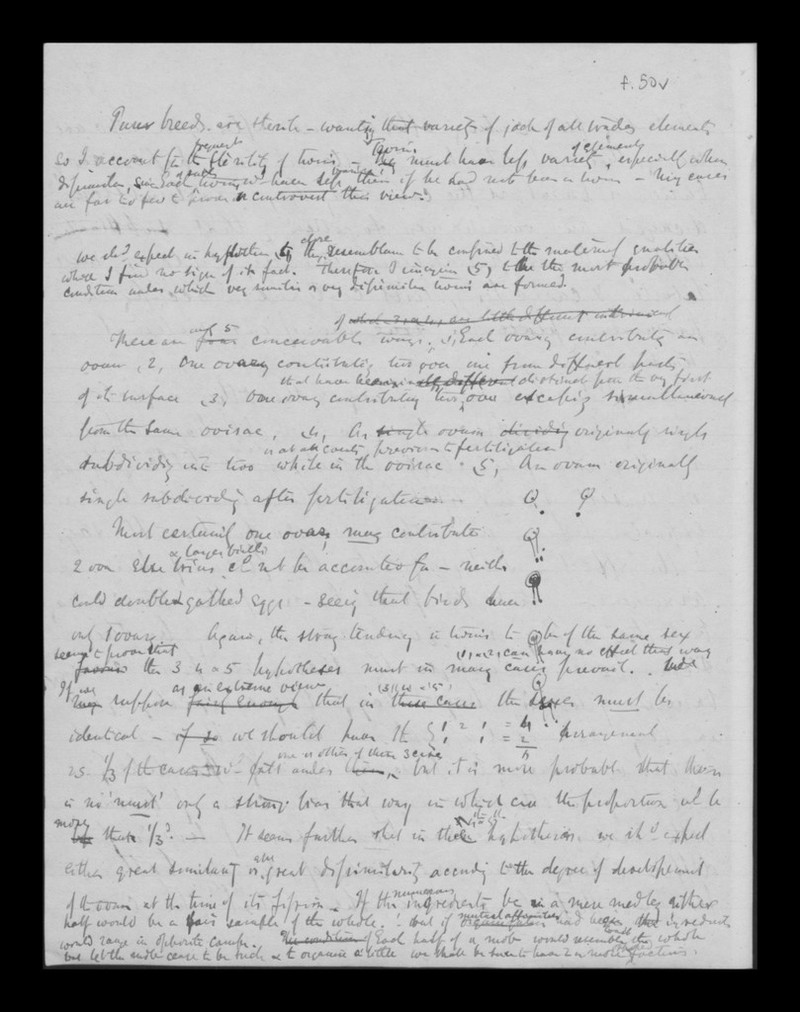 f. 50v
Pure breeds are sterile – wanting that variety of jack of all trades elements
frequent Twins of elements
So I account for the sterility of twins – they must have less variety, especially when
dissimilar, since each twin wd have less than if he had not been a twin – My cases
are far too few to prove or controvert this view.
close
we shd expect in hypothesis the resemblance to be confined to the maternal qualities
where I find no sign of its fact. Therefore I imagine (5) to be the most probable
condition under which very similar or very dissimilar twins are formed.
There are 5 conceivable ways. 1, Each ovary contributing an
ovum, 2, One ovary contributing two ova one from different parts
that have been distinct from the very first
of its surface, 3, One ovary contributing two ova escaping simultaneously
from the same ovisac, 4, A single ovum dividing originally single
previous to fertilization
subdividing into two while in the ovisac. 5, An ovum originally
single subdividing after fertilization.
Most certainly one ovary may contribute
or larger births
2 ova else trins cd not be accounted for – neither
could double yolked eggs – seeing that birds have
only 1 ovary. Again, the strong tendency in twins to be of the same sex
seems to prove that (1) & (2) can have no effect that way
the 3 4 or 5 hypotheses must in many cases prevail.
If we as an extreme view
suppose fairly enough that in these cases the sexes must be
identical – if so we should have
one or other of these 3
1/3 of the cases wd fall under but it is more probable that there
is no 'must' only a strong bias that way in which case the proportion wd be
more
than 1/3. — It seems further that in the hypothesis we shd expect
either great similarity or great dissimilarity according to the degree of development
of the ovum at the time of its fission. If the numerous ingredients be in a mere medley either
half would be a fair sample of the whole. But if mutual affinities had begun the ingredients
would range in opposite camps. The condition of Each half of a mob would resemble the whole
but let the mob cease to be such & to organise a little we shall be sure to have 2 or more factions.